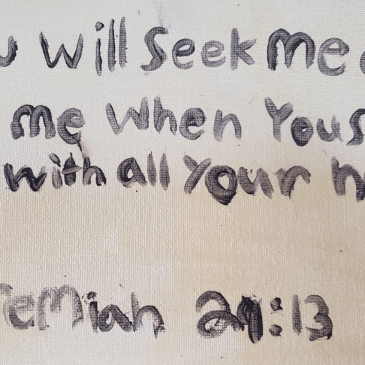 u will seek me a
me when you s
with all your h
remiah 29:13